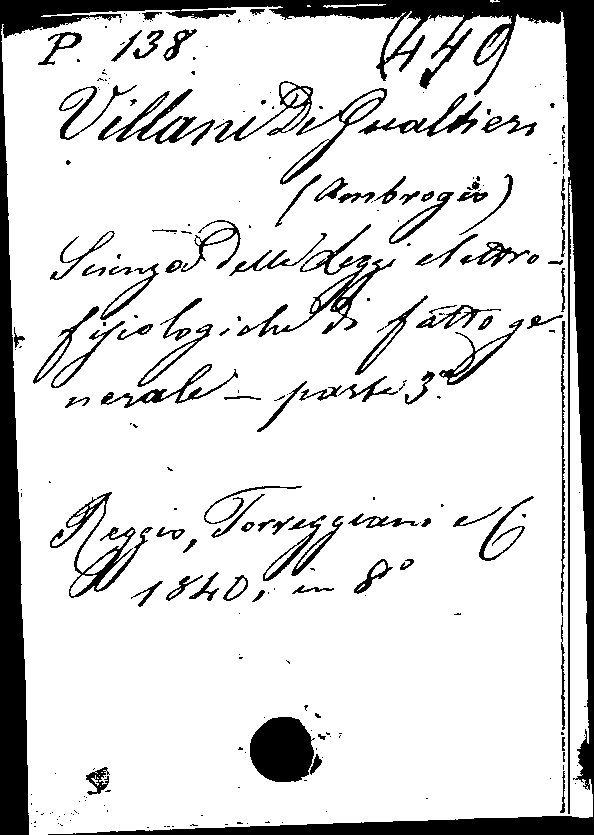 P. 138. (449)
Villani Di Gualtieri
(Ambrogio)
Scienza delle Leggi elettro-
fisiologiche di fatto ge-
nerale - parte 3.a
Reggio, Torreggiani e C.
1840, in 8o